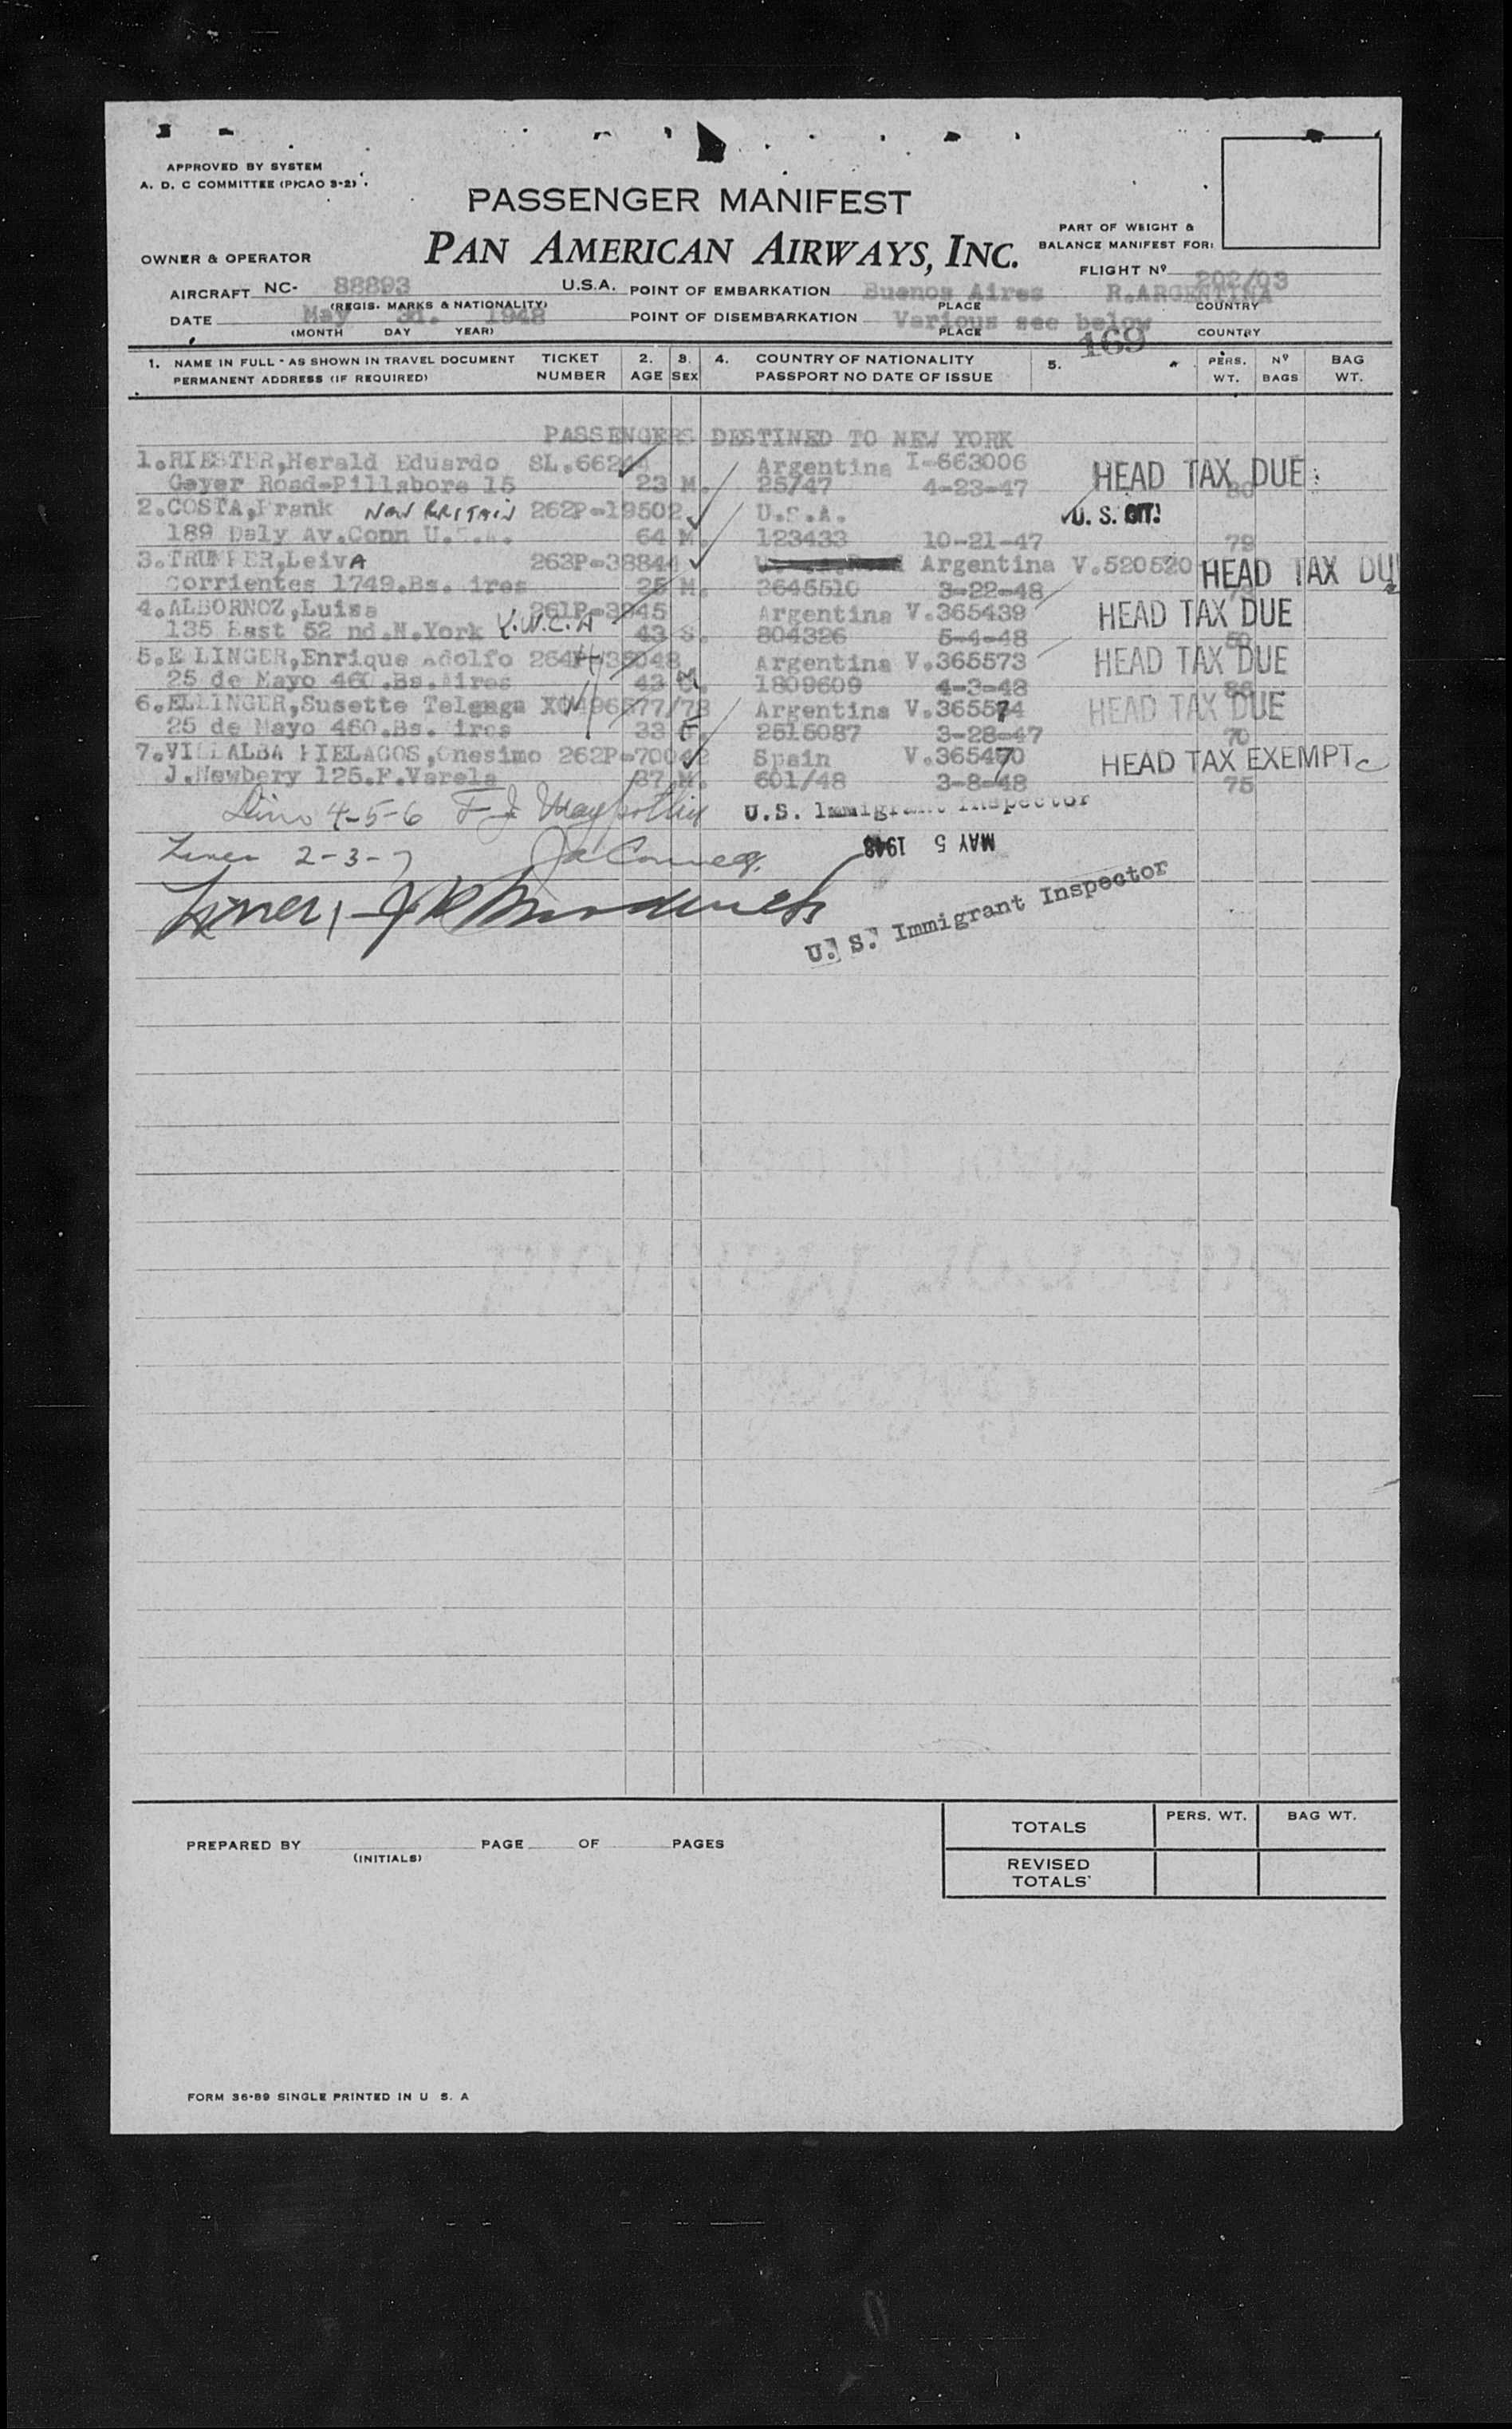 APPROVED BY SYSTEM
A. D. C COMMITTEE (PICAO 3-2)
PASSENGER MANIFEST
PAN AMERICAN AIRWAYS, INC.
PART OF WEIGHT &
BALANCE MANIFEST FOR:
OWNER & OPERATOR
FLIGHT Nº 202/03
AIRCRAFT NC- 88893 U.S.A. POINT OF EMBARKATION Buenos Aires R.ARGENTINA
(REGIS. MARKS & NATIONALITY) PLACE COUNTRY
DATE May 3d. 1948 POINT OF DISEMBARKATION Various see below
(MONTH DAY YEAR) PLACE COUNTRY
169
1. NAME IN FULL - AS SHOWN IN TRAVEL DOCUMENT TICKET 2. 3. 4. COUNTRY OF NATIONALITY 5. PERS. Nº BAG
PERMANENT ADDRESS (IF REQUIRED) NUMBER AGE SEX PASSPORT NO DATE OF ISSUE WT. BAGS WT.
PASSENGERS DESTINED TO NEW YORK
1.RIESTER,Herald Eduardo SL.66244 Argentina I-663006 HEAD TAX DUE
Geyer Road-Pillsbore 15 23 M. 25/47 4-23-47 80
2.COSTA,Frank NEW BRITAIN 262P-19502 U.S.A. U. S. CIT.
189 Daly Av.Conn U.S.A. 64 M. 123433 10-21-47 79
3.TRUMPER,LeivA 263P-38844 Argentina V.520520 HEAD TAX DU
Corrientes 1749.Bs. ires 25 M. 3645510 3-22-48
4.ALBORNOZ,Luisa 261P-3945 Argentina V.365439 HEAD TAX DUE
135 East 52 nd.N.York Y.W.C.A 43 S. 804326 5-4-48 50
5.E LINGER,Enrique Adolfo 264P-35048 Argentina V.365573 HEAD TAX DUE
25 de Mayo 460.Bs.Aires 43 M. 1809609 4-3-48
6.ELLINGER,Susette Telgega 496577/78 Argentina V.365574 HEAD TAX DUE
25 de Mayo 460.Bs. ires 33 F. 2515087 3-28-47 70
7.VILLALBA PIELAGOS,Onesimo 262P-70042 Spain V.365470 HEAD TAX EXEMPT
J.Newbery 125.F.Varela 37 M. 601/48 3-8-48 75
4-5-6 U.S. Immigrant Inspector
Lines 2-3-7 MAY 5 1948
Lines 1
U. S. Immigrant Inspector
TOTALS PERS. WT. BAG WT.
PREPARED BY PAGE OF PAGES
(INITIALS)
REVISED
TOTALS
FORM 36-89 SINGLE PRINTED IN U S. A